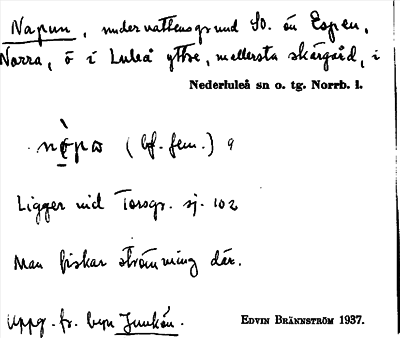 Napun, undervattensgrund SO. om Espen,
Norra, ö i Luleå yttre, mellersta skärgård, i
Nederluleå sn o. tg. Norrb. l.
(bf. fem.) 9
Ligger vid Torsgr. sj. 102
Man fiskar strömming där.
Uppg. fr. byn Junkön.
EDVIN BRÄNNSTRÖM 1937.